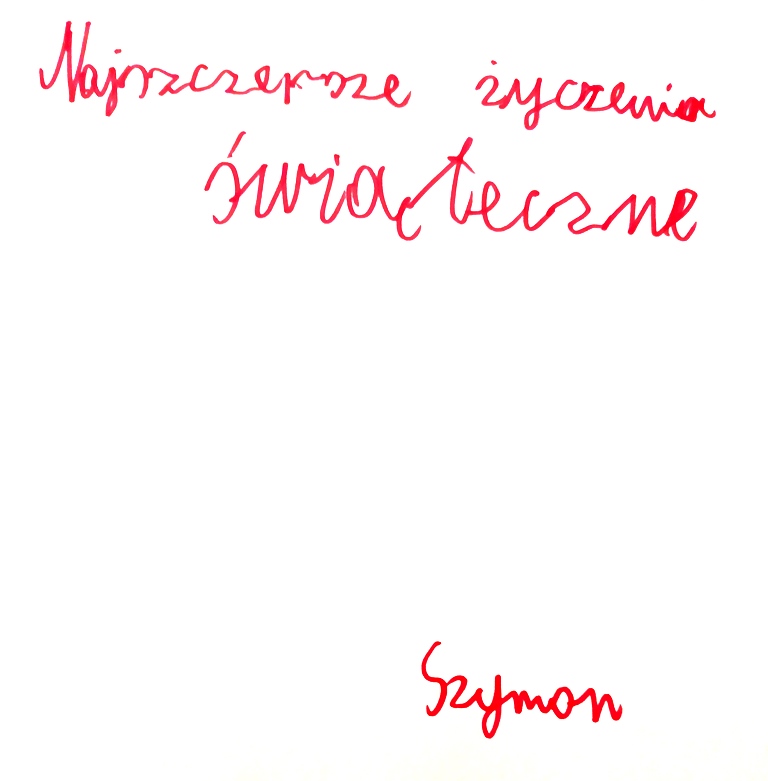 Najszczersze życzenia
świąteczne
Szymon